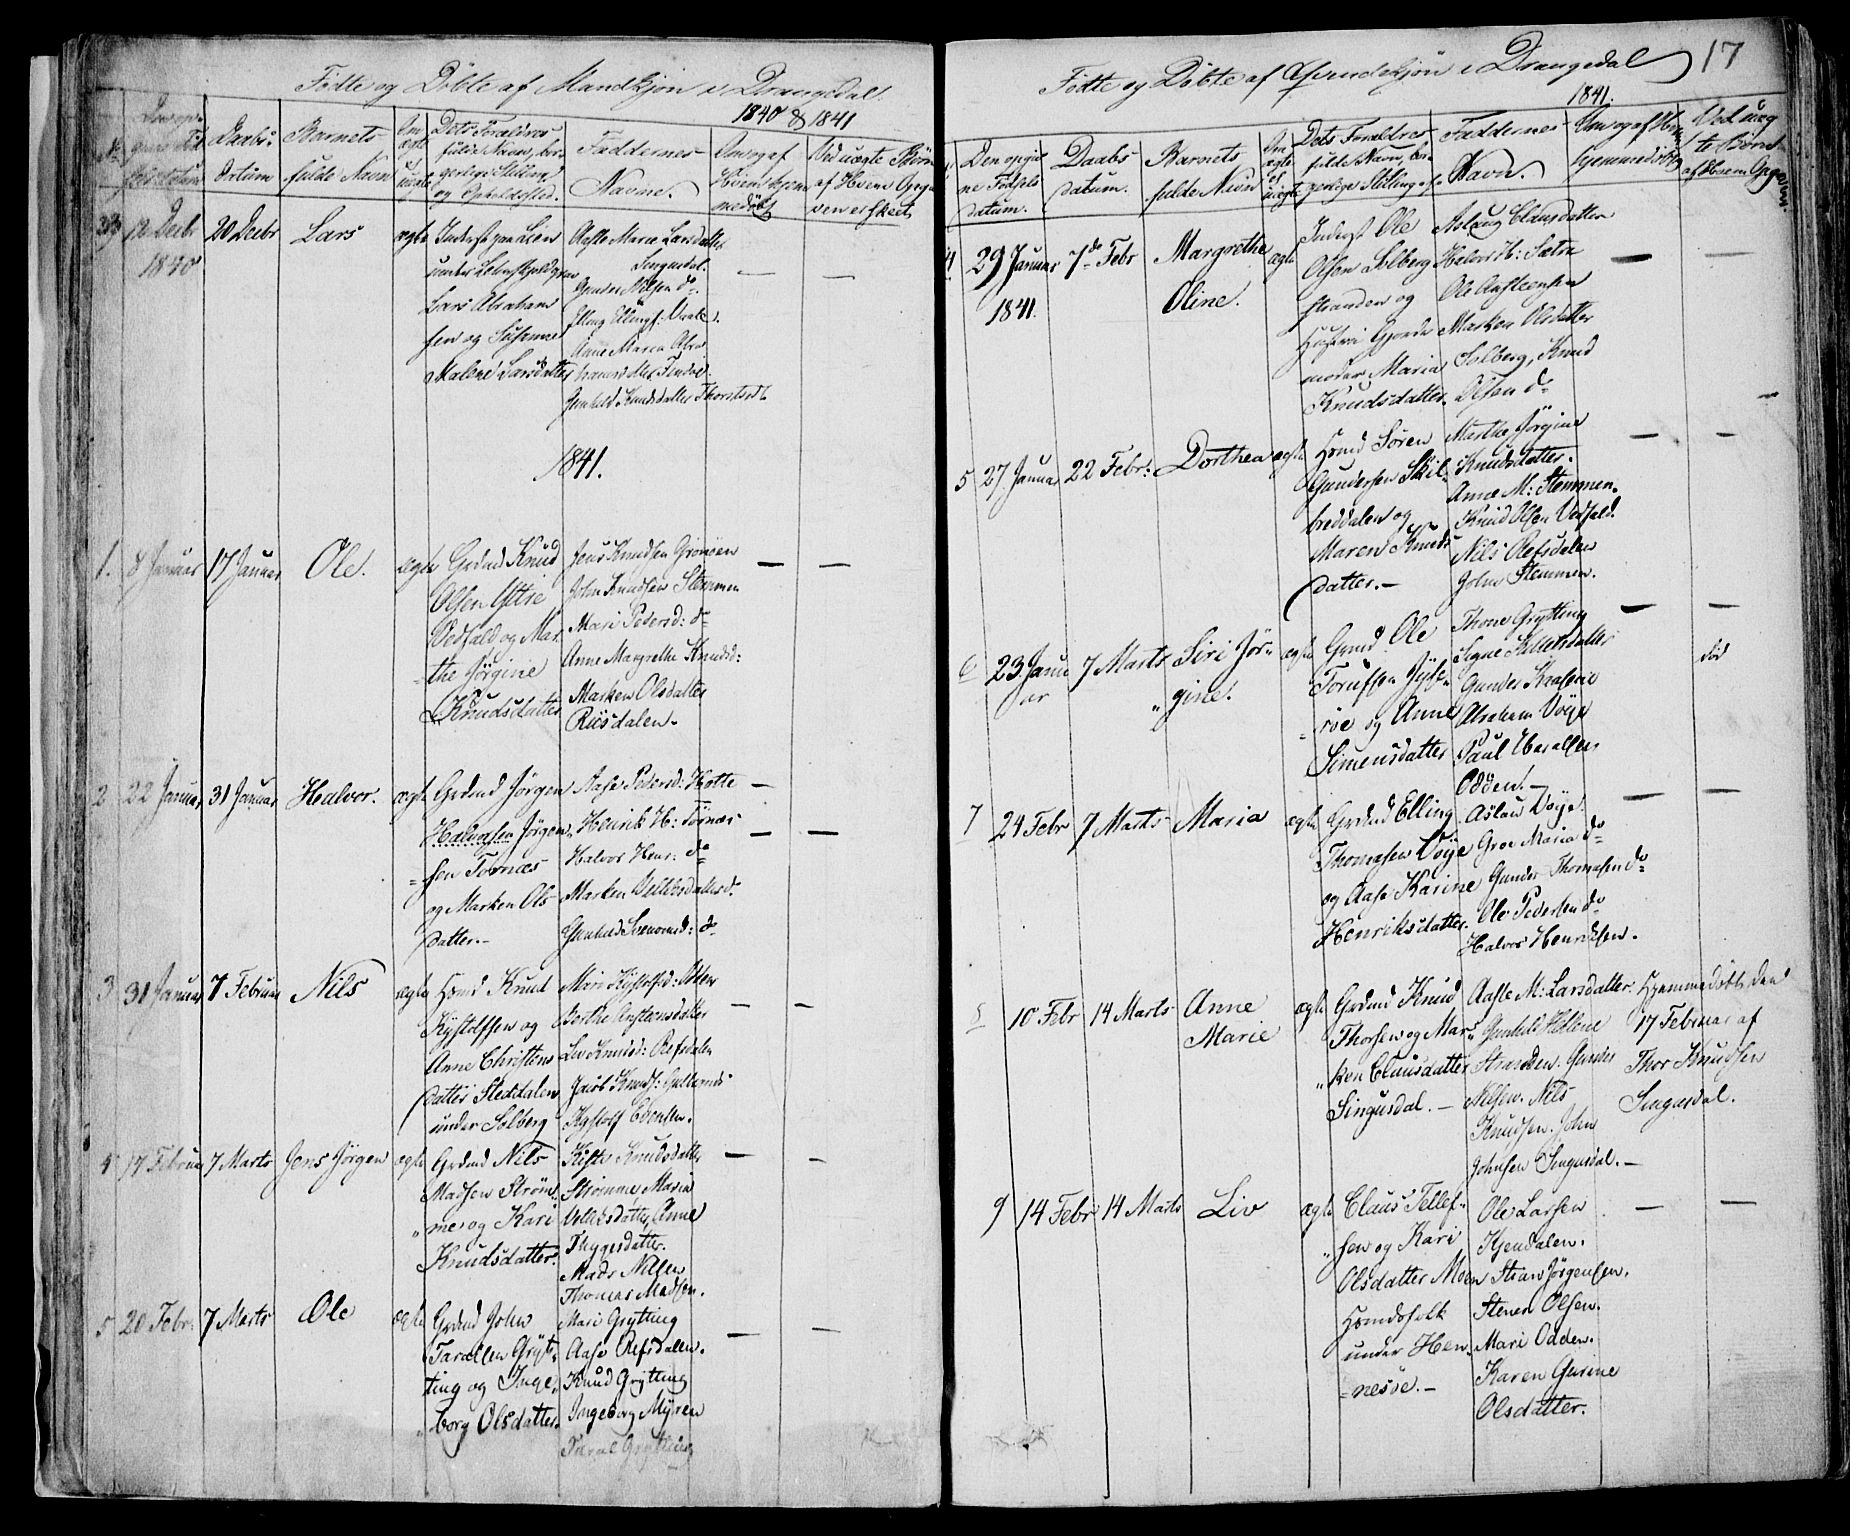 Fødte og Døbte af Mandkjøn i Drangedal.
1840 & 1841
Daabs-
Datum
Barnets
fulde Navn
Om
ægte
uægte
Dets Forældres
fulde Navn, bor-
gerlige Stilling
og Opholdssted.
Faddernes
Navne.
Om og af
Hvem hjem
medøbt
Ved uægte Børn
af Hvem Opga
ven er skeet
33
12 Decbr
1840
20 Decbr
Lars
ægte
under
Lars Abraham
sen og Susanne
Malene Larsdatter
Aasle Marie Larsdatter
Singusdal.
Gunder Nilsen do
Elling Ellings:
Anne Maria Abra
hamsdtr
Gunhild Knudsdatter
—
—
1841.
1.
8 Januar
17 Januar
Ole.
ægte
Grdmd Knud
Olsen Yttre
Vedfald og Mar
the Jørgine
Knudsdatter
Jens Knudsen Grønåen
John Knudsen Stemmen
Mari Pedersd: do
Anne Margrethe Knudsd:
Marken Olsdatter
Riisdalen.
—
—
2
22 Januar
31 Januar
Halvor.
ægte
Grdmd Jørgen
Halvorsen Jørgen
sen Tørnæs
og Marken Ols
datter.—
Aase Pedersd: Holte
Henrik H: Tørnæs
Halvor Henr: do
Marken
Gunhild do
—
—
—
3
31 Januar
7 Februar
Nils
ægte
Hsmd Knud
Kystolfsen og
Anne Christens
datter Steddalen
under Solberg
Mari Kystolfsd:
Berthe Austensdatter
Liv Knudsd: Refsdalen
Jacob Knuds:
Kystolf Evensen.
—
—
4
17 Februar
7 Marts
Jens Jørgen
ægte
Grdmd Nils
Madsen Strøm-
me og Kari
Knudsdatter.
Kisti Knudsdatter
Strømme Maria
Anne
Thygesdatter.
Mads Nilsen
Thomas Madsen.
—
—
5
20 Febr:
7 Marts
Ole
ægte
Grdmd John
Taraldsen Gryt-
ting og Inge-
borg Olsdatter.
Mari Grytting
Aase Refsdalen.
Knud Grytting
Ingeborg Myren
Taral Grytting
—
—
Fødte og Døbte af Qvindekjøn i Drangedal
17
1841.
Den opgiv
ne Fødsels
datum.
Daabs
datum.
Barnets
fulde Navn
Om
ægte
el
uægte
Dets Forældres
fulde Navn, bor-
gerlige Stilling
Faddernes
Navn.
Om og af Hvem
hjemmedøbt
Ved uæg
te Børn
af Hvem Opgaven.
4
29 Januar
1841.
7de Febr
Margrethe
Oline.
ægte
Inderst Ole
Olsen Solberg
stranden og
Hustru Gjorde
moder Maria
Knudsdatter.
Aslaug Clausdatter
Halvor H: Sætre
Ole Austeensen
Marken Olsdatter
Solberg, Knud
Olsen do
—
—
5
27 Januar
22 Febr:
Dorthea
ægte
Hsmd Søren
Gundersen Skil-
breddalen og
Maren Knuds
datter.—
Marthe Jørgine
Knudsdatter.
Anne M: Stemmen.
Knud Olsen Vedfald.
Nils Refsdalen
John Stemmen.
—
—
6
23 Janu
ar
7 Marts
Siri Jør-
gine.
ægte
Grmd Ole
og Anne
Simensdatter
Thone Grytting
Signe Kittelsdatter
Gunder Kaasene
Abraham Voje
Paul
Odden.—
—
—
død
7
24 Febr
7 Marts
Maria
ægte
Grdmd Elling
Thomæsen Voje
og Aase Karine
Henriksdatter.
Aslau Voje.
Groe Maria do
Gunder Thomæsen do
Ole Pedersen do
Halvor Henriksen.
—
—
8
10 Febr
14 Marts
Anne
Marie
ægte
Grdmd Knud
Thorsen og Mar-
ken Clausdatter
Singusdal.—
Aasle M: Larsdatter.
Gunhild Hellene
Stranden. Gunder
Nilsen. Nils
Knudsen. John
Johnsen Singusdal.—
Hjemmedøbt den
17 Februar af
Thor Knudsen
Singusdal.
9
14 Febr
14 Marts
Liv
ægte
Claus Tellef-
sen og Kari
Olsdatter Moen
Hsmdsfolk
under Hen-
nesøe.—
Ole Larsen
Kjendalen.
Strand Jørgensen.
Stener Olsen.
Mari Odden.
Karen Gurine
Olsdatter.
—
—